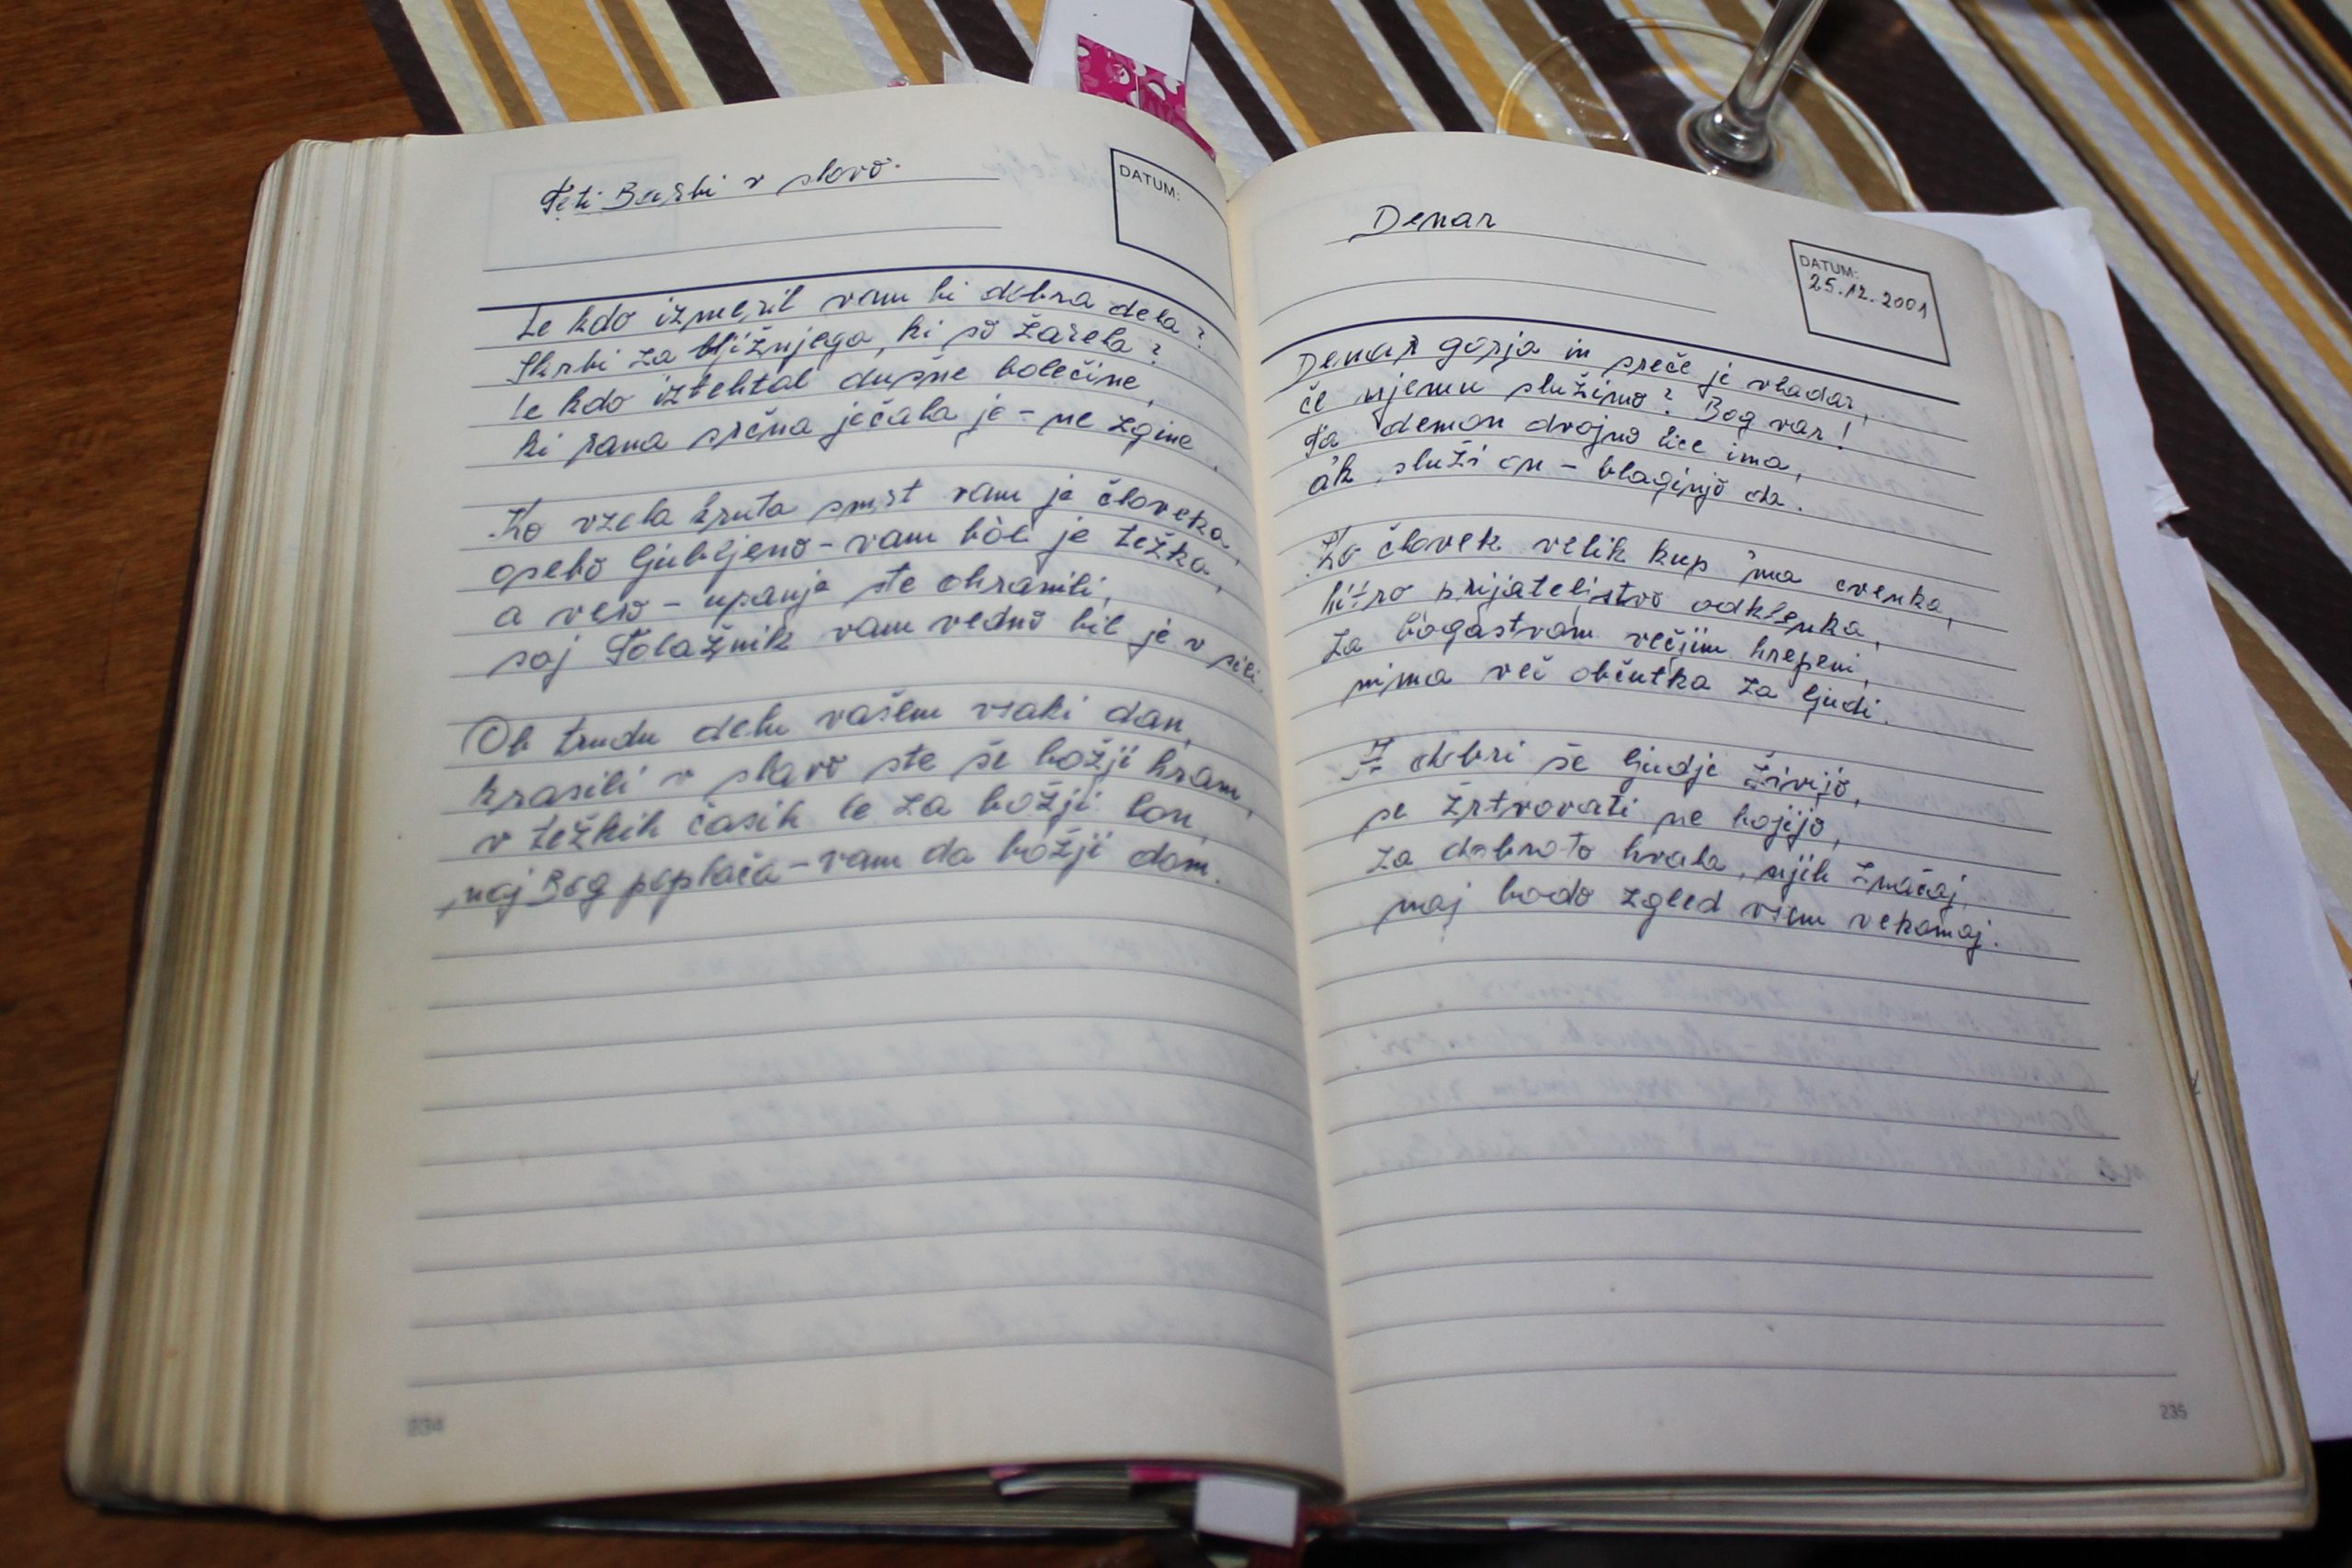 Teti Barbi v slovo.
DATUM:
Le kdo izmeril vam bi dobra dela?
Skrbi za bližnjega, ki so žarela?
Le kdo iztehtal dušne bolečine,
ki rama srčna ječala je - ne zgine.
Ko vzela kruta smrt vam je človeka,
osebo ljubljeno - vam bol je težka,
a vero - upanje ste ohranili,
saj Tolažnik vam vedno bil je v sili.
Ob trudu delu vašem vsaki dan,
krasili v slavo ste še božji hram,
v težkih časih le za božji lon,
naj Bog poplača - vam da božji dom.
234
Denar
DATUM:
25.12.2001
Denar gorja in sreče je vladar,
če njemu služimo? Bog var!
Ta demon dvojno lice ima,
ak služi on - blaginjo da.
Ko človek velik kup 'ma cvenka,
hitro prijateljstvo odklenka,
za bogastvom večjim hrepeni,
nima več občutka za ljudi.
I dobri še ljudje živijo,
se žrtvovati ne bojijo,
za dobroto hvala, njih značaj,
naj bodo zgled vsem vekomaj.
235